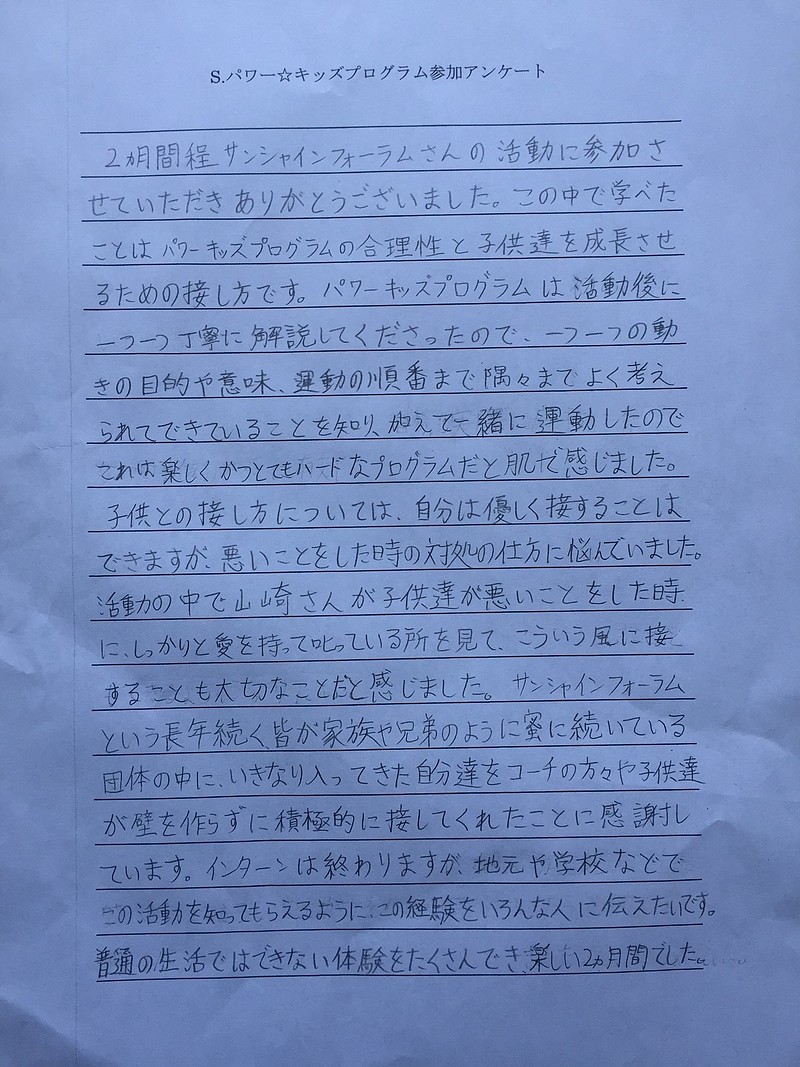 S.パワー☆キッズプログラム参加アンケート
2ヵ月間程サンシャインフォーラムさんの活動に参加さ
せていただきありがとうございました。この中で学べた
ことはパワーキッズプログラムの合理性と子供達を成長させ
るための接し方です。パワーキッズプログラムは活動後に
一つ一つ丁寧に解説してくださったので、一つ一つの動
きの目的や意味、運動の順番まで隅々までよく考え
られてできていることを知り、加えて一緒に運動したので
これは楽しくかつとてもハードなプログラムだと肌で感じました。
子供との接し方については、自分は優しく接することは
できますが、悪いことをした時の対処の仕方に悩んでいました。
活動の中で山崎さんが子供達が悪いことをした時
に、しっかりと愛を持って叱っている所を見て、こういう風に接
することも大切なことだと感じました。サンシャインフォーラム
という長年続く、皆が家族や兄弟のように蜜に続いている
団体の中に、いきなり入ってきた自分達をコーチの方々や子供達
が壁を作らずに積極的に接してくれたことに感謝し
ています。インターンは終わりますが、地元や学校などで
この活動を知ってもらえるように、この経験をいろんな人に伝えたいです。
普通の生活ではできない体験をたくさんでき、楽しい2ヵ月間でした。